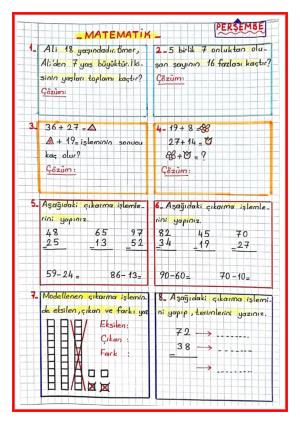 PERŞEMBE
- MATEMATİK -
1- Ali 18 yaşındadır. Ömer,
Ali'den 7 yaş büyüktür. İki-
sinin yaşları toplamı kaçtır?
Çözüm:
2- 5 birlik 7 onluktan olu-
şan sayının 16 fazlası kaçtır?
Çözüm:
3- 36 + 27 =
+ 19 = işleminin sonucu
kaç olur?
Çözüm:
4- 19 + 8 =
27 + 14 =
+ = ?
Çözüm:
5- Aşağıdaki çıkarma işlemle-
rini yapınız.
48 65 97
25 13 52
59-24= 86-13=
6- Aşağıdaki çıkarma işlemle-
rini yapınız.
82 45 70
34 19 27
90-60= 70-10=
7- Modellenen çıkarma işlemin-
de eksilen, çıkan ve farkı ya
Eksilen:
Çıkan :
Fark :
8- Aşağıdaki çıkarma işlemi-
ni yapıp, terimlerini yazınız.
72 → ........
38 → ........
= → ........